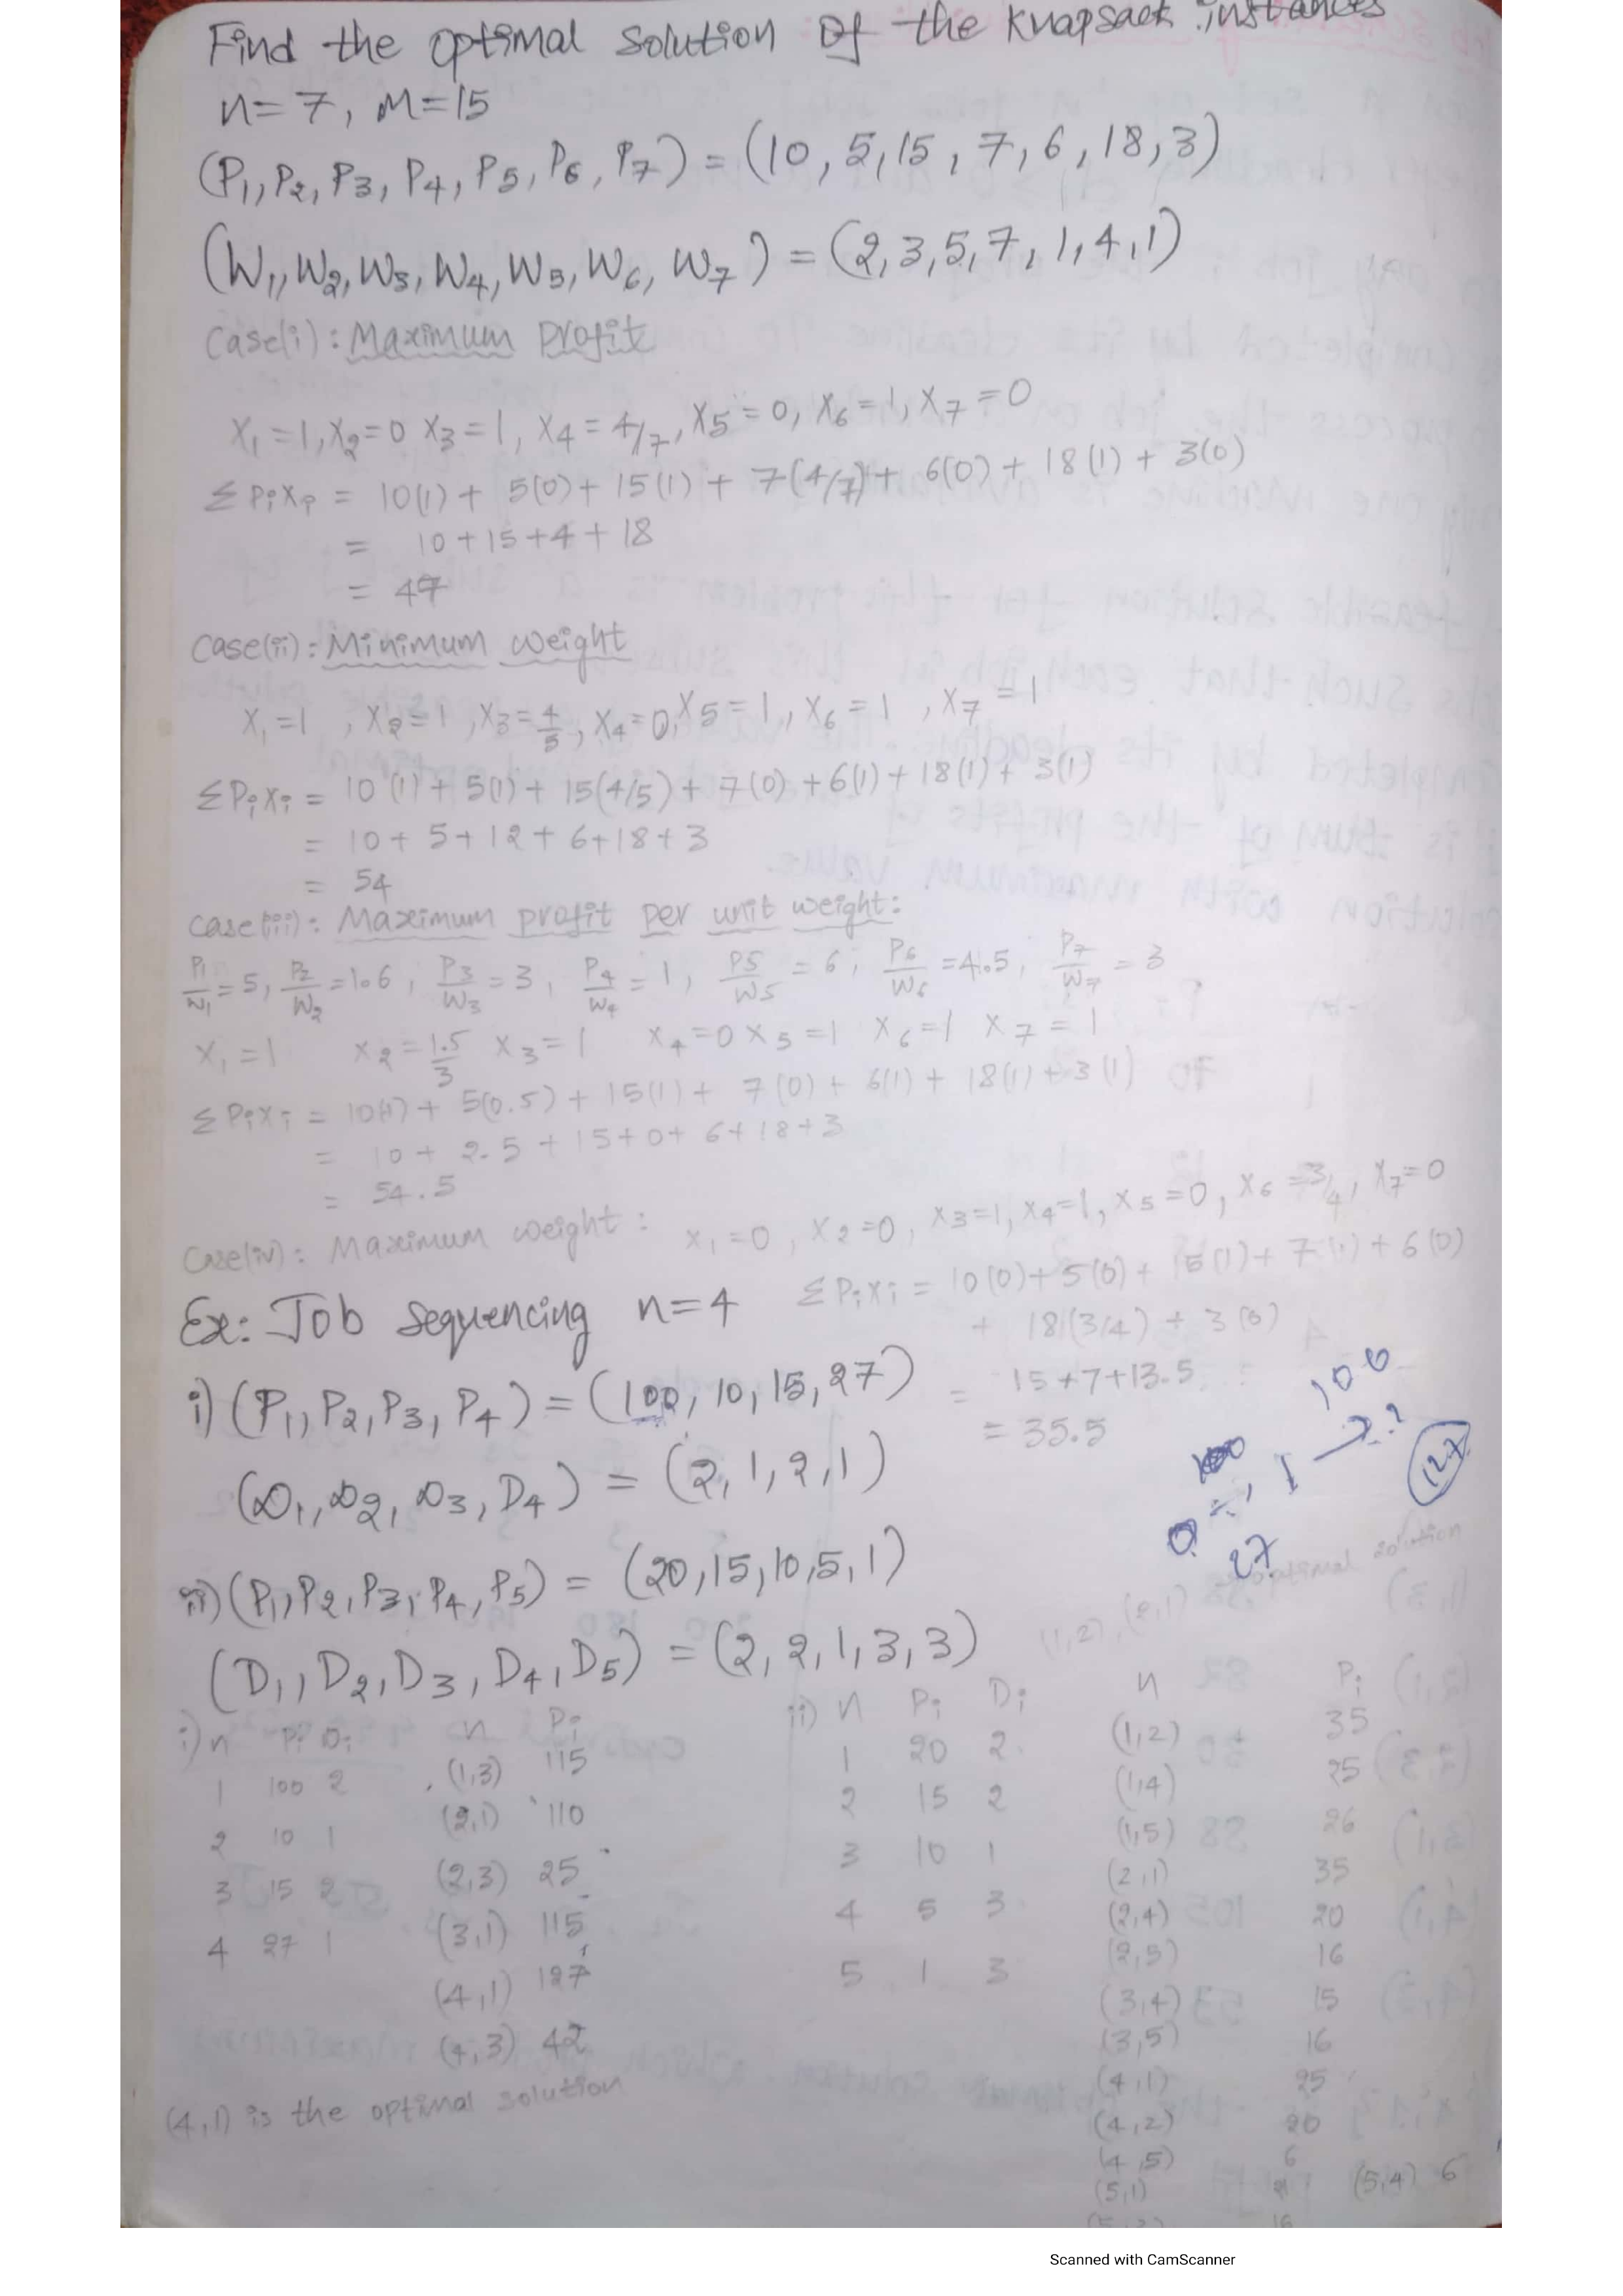 Find the optimal solution of the knapsack instances
n=7, M=15
(P1, P2, P3, P4, P5, P6, P7) = (10, 5, 15, 7, 6, 18, 3)
(W1, W2, W3, W4, W5, W6, W7) = (2, 3, 5, 7, 1, 4, 1)
Case(i): Maximum profit
X1 = 1, X2 = 0 X3 = 1, X4 = 4/7, X5 = 0, X6 = 1, X7 = 0
ΣPiXi = 10(1) + 5(0) + 15(1) + 7(4/7) + 6(0) + 18(1) + 3(0)
= 10+15+4+18
= 47
Case(ii): Minimum weight
X1 = 1, X2 = 1, X3 = 4/5, X4 = 0, X5 = 1, X6 = 1, X7 = 1
ΣPiXi = 10(1) + 5(1) + 15(4/5) + 7(0) + 6(1) + 18(1) + 3(1)
= 10 + 5 + 12 + 6 + 18 + 3
= 54
Case(iii): Maximum profit per unit weight:
P1/W1 = 5, P2/W2 = 1.6, P3/W3 = 3, P4/W4 = 1, P5/W5 = 6, P6/W6 = 4.5, P7/W7 = 3
X1 = 1 X2 = 1.5/3 X3 = 1 X4 = 0 X5 = 1 X6 = 1 X7 = 1
ΣPiXi = 10(1) + 5(0.5) + 15(1) + 7(0) + 6(1) + 18(1) + 3(1)
= 10 + 2.5 + 15 + 0 + 6 + 18 + 3
= 54.5
Case(iv): Maximum weight: X1 = 0, X2 = 0, X3 = 1, X4 = 1, X5 = 0, X6 = 3/4, X7 = 0
ΣPiXi = 10(0) + 5(0) + 15(1) + 7(1) + 6(0)
+ 18(3/4) + 3(0)
= 15+7+13.5
= 35.5
Ex: Job sequencing n=4
i) (P1, P2, P3, P4) = (100, 10, 15, 27)
(D1, D2, D3, D4) = (2, 1, 2, 1)
100
127
27
ii) (P1, P2, P3, P4, P5) = (20, 15, 10, 5, 1)
(D1, D2, D3, D4, D5) = (2, 2, 1, 3, 3)
(1,2), (2,1) optimal solution
i) n Pi Di n Pi
1 100 2 (1,3) 115
2 10 1 (2,1) 110
3 15 2 (2,3) 25
4 27 1 (3,1) 115
(4,1) 127
(4,3) 42
(4,1) is the optimal solution
ii) n Pi Di n Pi
1 20 2 (1,2) 35
2 15 2 (1,4) 25
3 10 1 (1,5) 26
4 5 3 (2,1) 35
5 1 3 (2,4) 20
(2,5) 16
(3,4) 15
(3,5) 16
(4,1) 25
(4,2) 20
(4,5) 6
(5,1)
(5,4) 6
16
Scanned with CamScanner